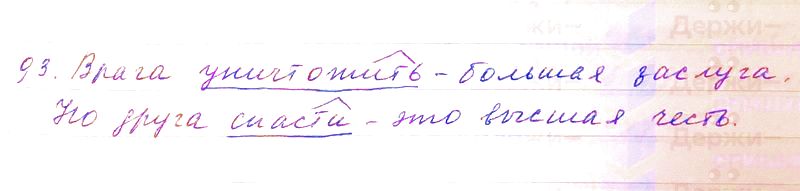 93. Врага уничтожить – большая заслуга.
Но друга спасти – это высшая честь.
Держи–
Держи–
Держи